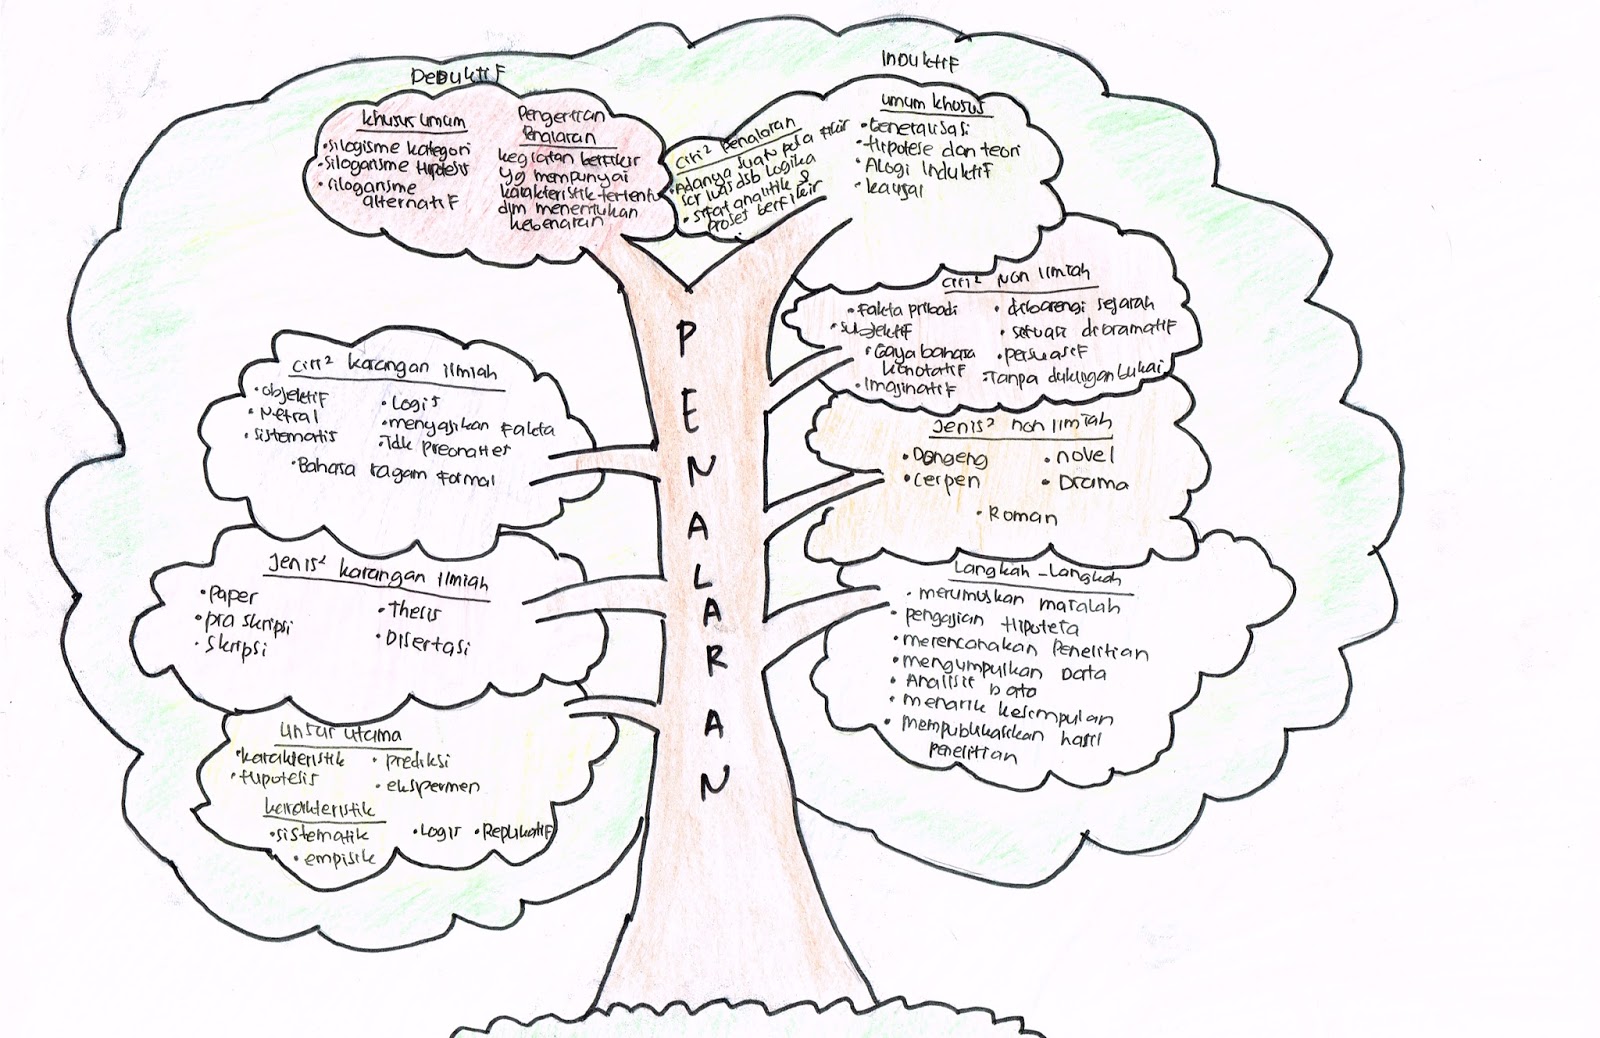 DEDUKTIF
khusus umum
• silogisme kategori
• silogansme Hipotesis
• silogansme
alternatif
Pengertian
Penalaran
kegiatan berfikir
yg mempunyai
karakteristik tertentu
dlm menentukan
kebenaran
INDUKTIF
Ciri² Penalaran
• Adanya suatu pola fikir
scr luas dsb Logika
• sifat analitik &
proset berfikir
umum khusus
• Generalisasi
• Hipotese dan teori
• ALogi InduktiF
• kausal
PENALARAN
Ciri² Non Ilmiah
• Fakta pribadi
• subjektiF
• Gaya bahasa
konotatiF
• ImajinatiF
• dibarengi sejarah
• setuasi dibramatiF
• persuasiF
• Tanpa dukungan bukai
Ciri² karangan ilmiah
• objektiF
• Netral
• sistematis
• Logis
• menyajikan Fakta
• Tdk
• Bahasa ragam Formal
Jenis² non Ilmiah
• Dongeng
• Cerpen
• novel
• Drama
• Roman
Jenis² karangan Ilmiah
• Paper
• pra skripsi
• Skripsi
• Thesis
• Disertasi
Langkah - Langkah
• merumuskan masalah
• pengajian Hipoteta
• merencanakan Penelitian
• mengumpulkan Data
• Analisis Data
• menarik kesimpulan
• mempublikasikan hasil
penelitian
Unsur utama
• karakteristik
• Hipotesis
• prediksi
• ekspermen
karakteristik
• sistematik
• Logis
• ReplikatiF
• empisik